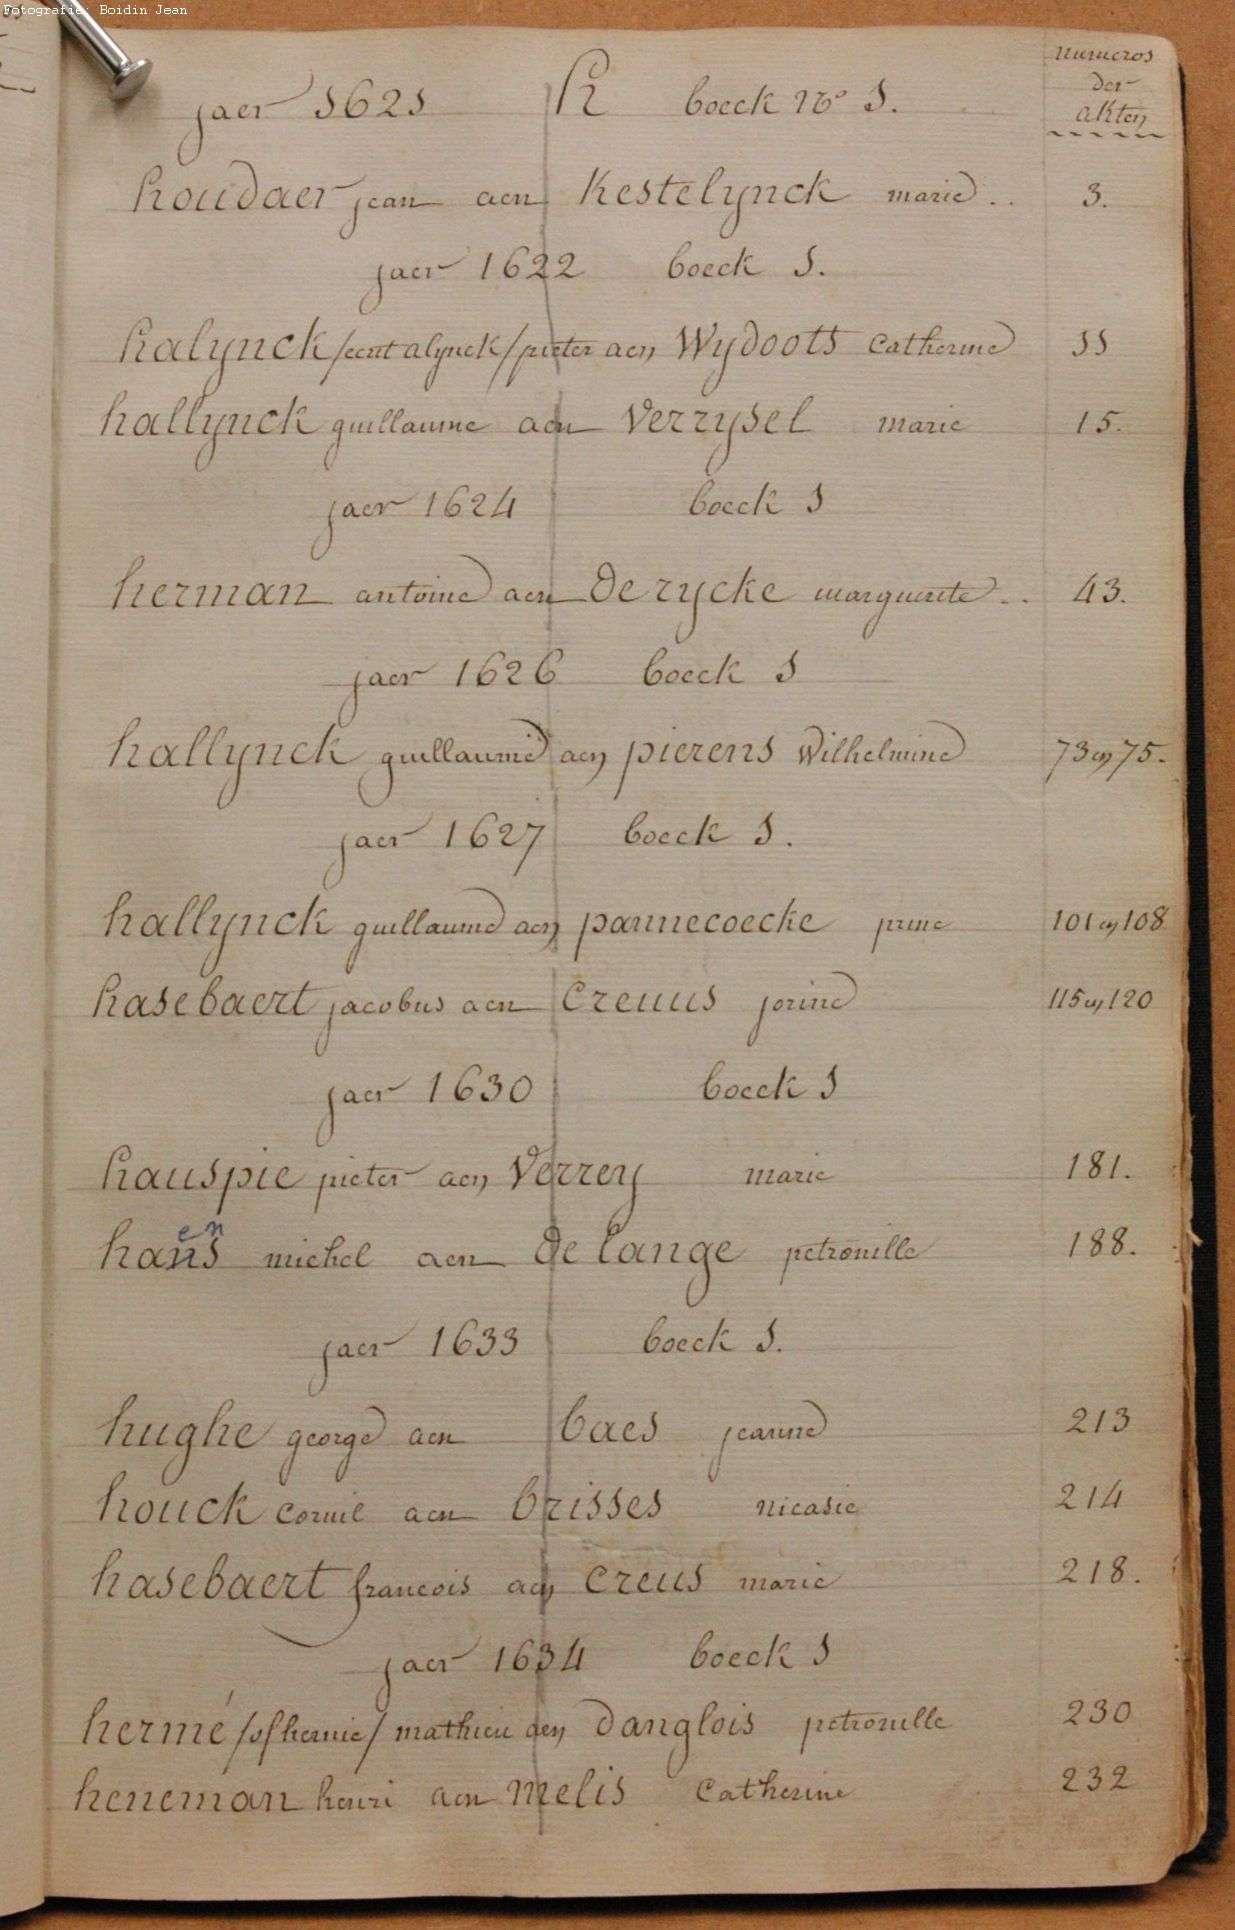 Fotografie: Boidin Jean
numeros
der
akten
jaer 1621 H boeck No 1.
houdaer jean aen Kestelynck marie .. 3.
jaer 1622 boeck 1.
halynck /eent alynck/ pieter aen Wydoots Catherine 11
hallynck guillaume aen Verrysel marie 15.
jaer 1624 boeck 1
herman antoine aen De rycke marguerite .. 43.
jaer 1626 boeck 1
hallynck guillaume aen pierens Wilhelmine 73 en 75.
jaer 1627 boeck 1.
hallynck guillaume aen pannecoecke 101 en 108
hasebaert jacobus aen Creuus jorine 115 en 120
jaer 1630 boeck 1
hauspie pieter aen Verrey marie 181.
en
haus michel aen De lange petronille 188.
jaer 1633 boeck 1.
hughe george aen baes jeanne 213
houck Cornil aen brisses nicasie 214
hasebaert francois aen Creus marie 218.
jaer 1634 boeck 1
hermé /of hernie/ mathieu aen Danglois petronille 230
heneman henri aen Melis Catherine 232